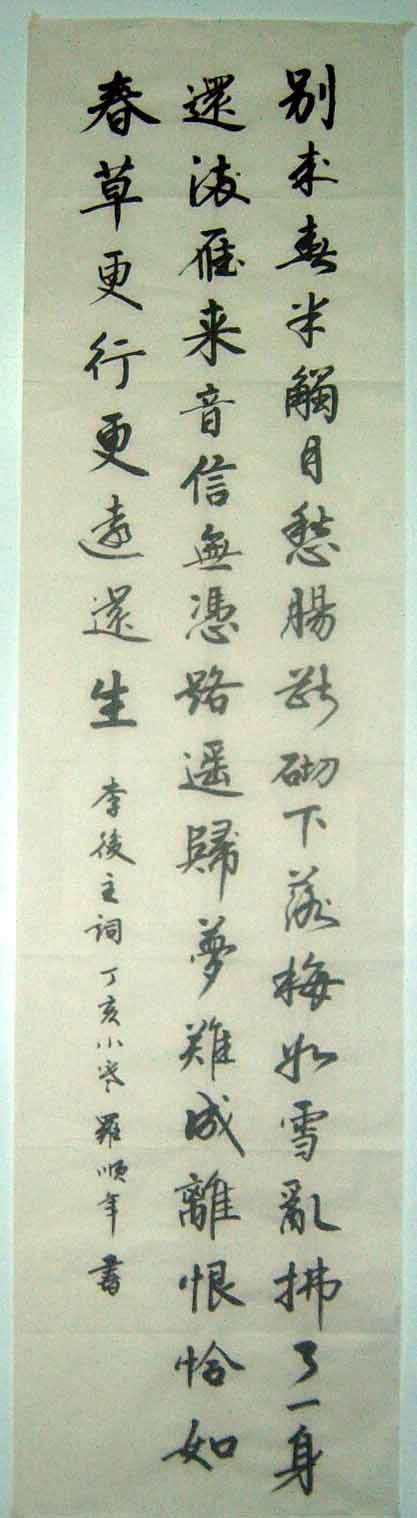 別来春半觸目愁腸斷砌下落梅如雪亂拂了一身
還滿雁来音信無憑路遥歸夢難成離恨恰如
春草更行更遠還生
李後主詞丁亥小寒羅順年書